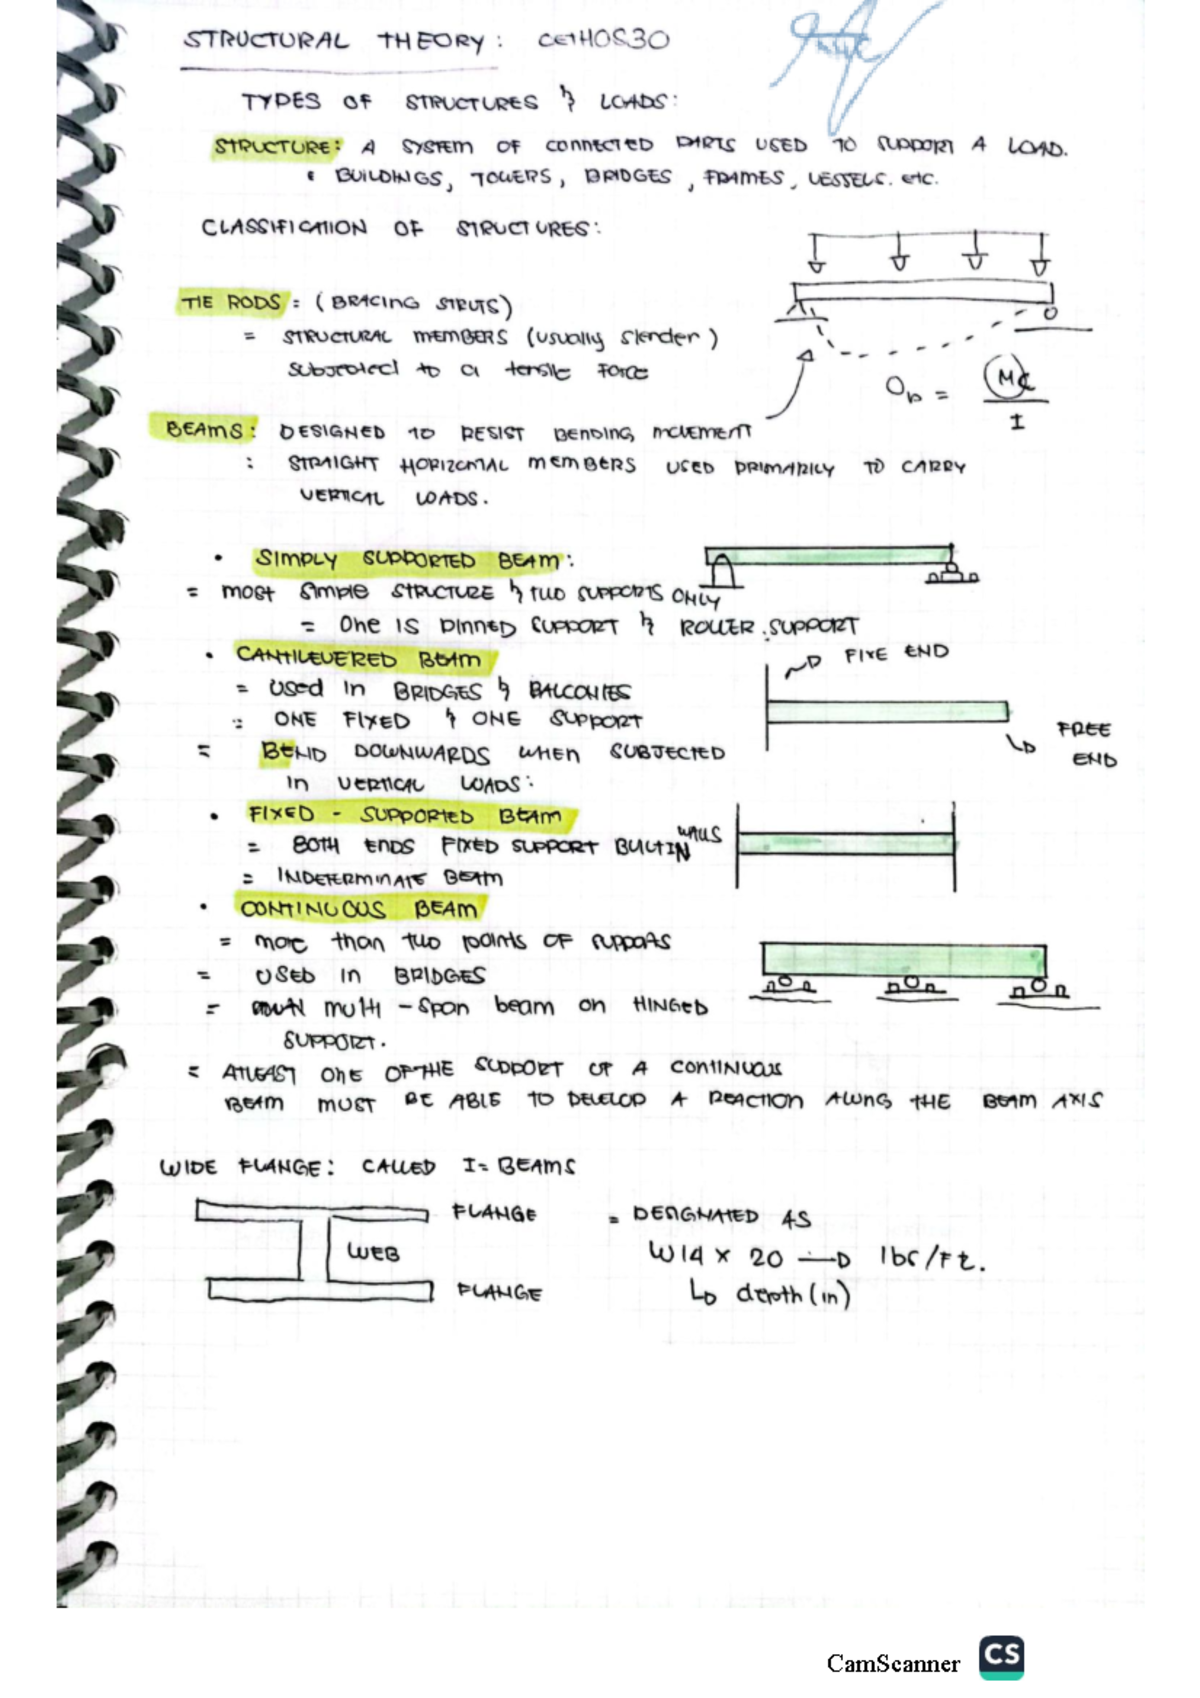 STRUCTURAL THEORY: CETHOS30
TYPES OF STRUCTURES & LOADS:
STRUCTURE: A SYSTEM OF CONNECTED PARTS USED TO SUPPORT A LOAD.
BUILDINGS, TOWERS, BRIDGES, FRAMES, VESSELS. etc.
CLASSIFICATION OF STRUCTURES:
TIE RODS: (BRACING STRUTS)
= STRUCTURAL MEMBERS (usually slender)
subjected to a tensile FORCE
σb = MC / I
BEAMS: DESIGNED TO RESIST BENDING MOVEMENT
: STRAIGHT HORIZONTAL MEMBERS USED PRIMARILY TO CARRY
VERTICAL LOADS.
• SIMPLY SUPPORTED BEAM:
= most simple STRUCTURE & TWO SUPPORTS ONLY
= One IS PINNED SUPPORT & ROLLER SUPPORT
• CANTILEVERED BEAM
FIXE END
= used in BRIDGES & BALCONIES
= ONE FIXED & ONE SUPPORT
FREE
END
= BEND DOWNWARDS WHEN SUBJECTED
in VERTICAL LOADS:
• FIXED - SUPPORTED BEAM
= BOTH ENDS FIXED SUPPORT BUILTIN WALLS
= INDETERMINATE BEAM
• CONTINUOUS BEAM
= more than two points OF SUPPORTS
= USED IN BRIDGES
= multi - span beam on HINGED
SUPPORT.
= ATLEAST ONE OF THE SUPPORT OF A CONTINUOUS
BEAM MUST BE ABLE TO DEVELOP A REACTION ALONG THE BEAM AXIS
WIDE FLANGE: CALLED I= BEAMS
FLANGE
WEB
FLANGE
= DESIGNATED AS
W14 x 20 → lbs/Ft.
↳ depth (in)
CamScanner
CS